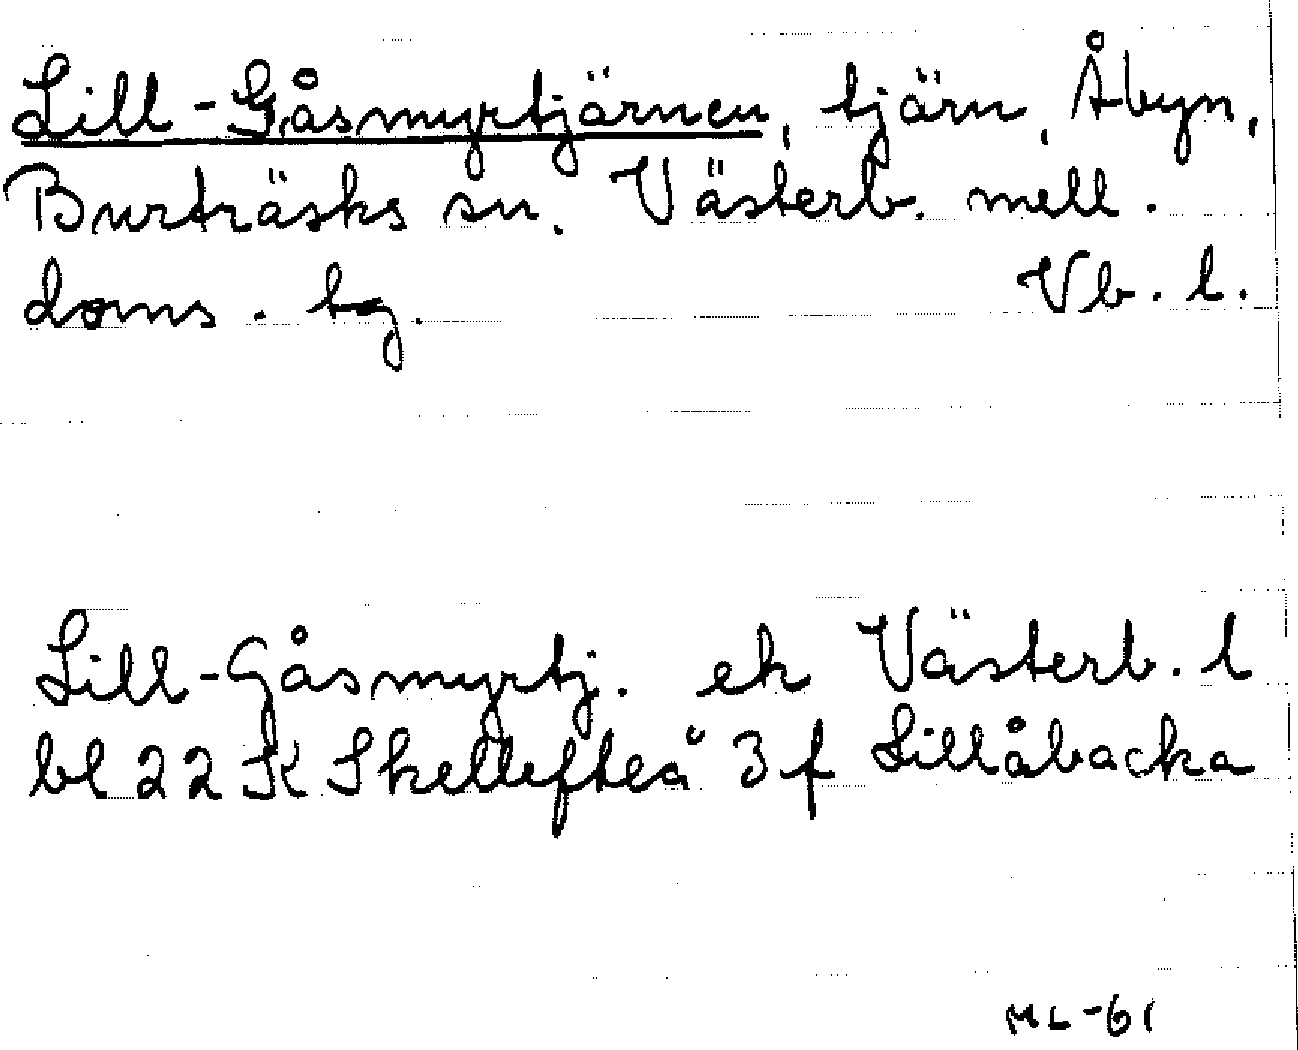 Lill-Gåsmyrtjärnen, tjärn, Åbyn,
Burträsks sn. Västerb. mell.
doms. tg. Vb. l.
Lill-Gåsmyrtj. ek Västerb. l
bl 22 K Skellefteå 3 f Lillåbacka
ML-61